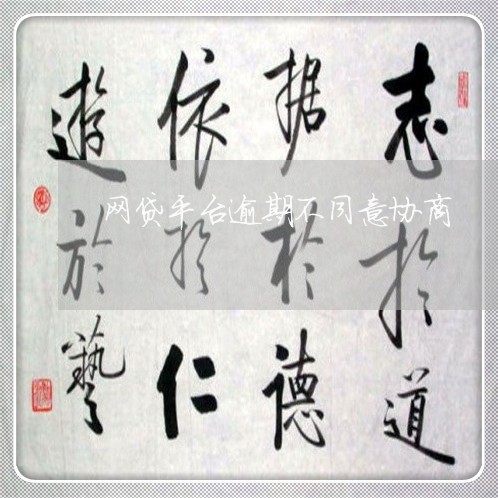 志於道
据於德
依於仁
遊於藝
网贷平台逾期不同意协商